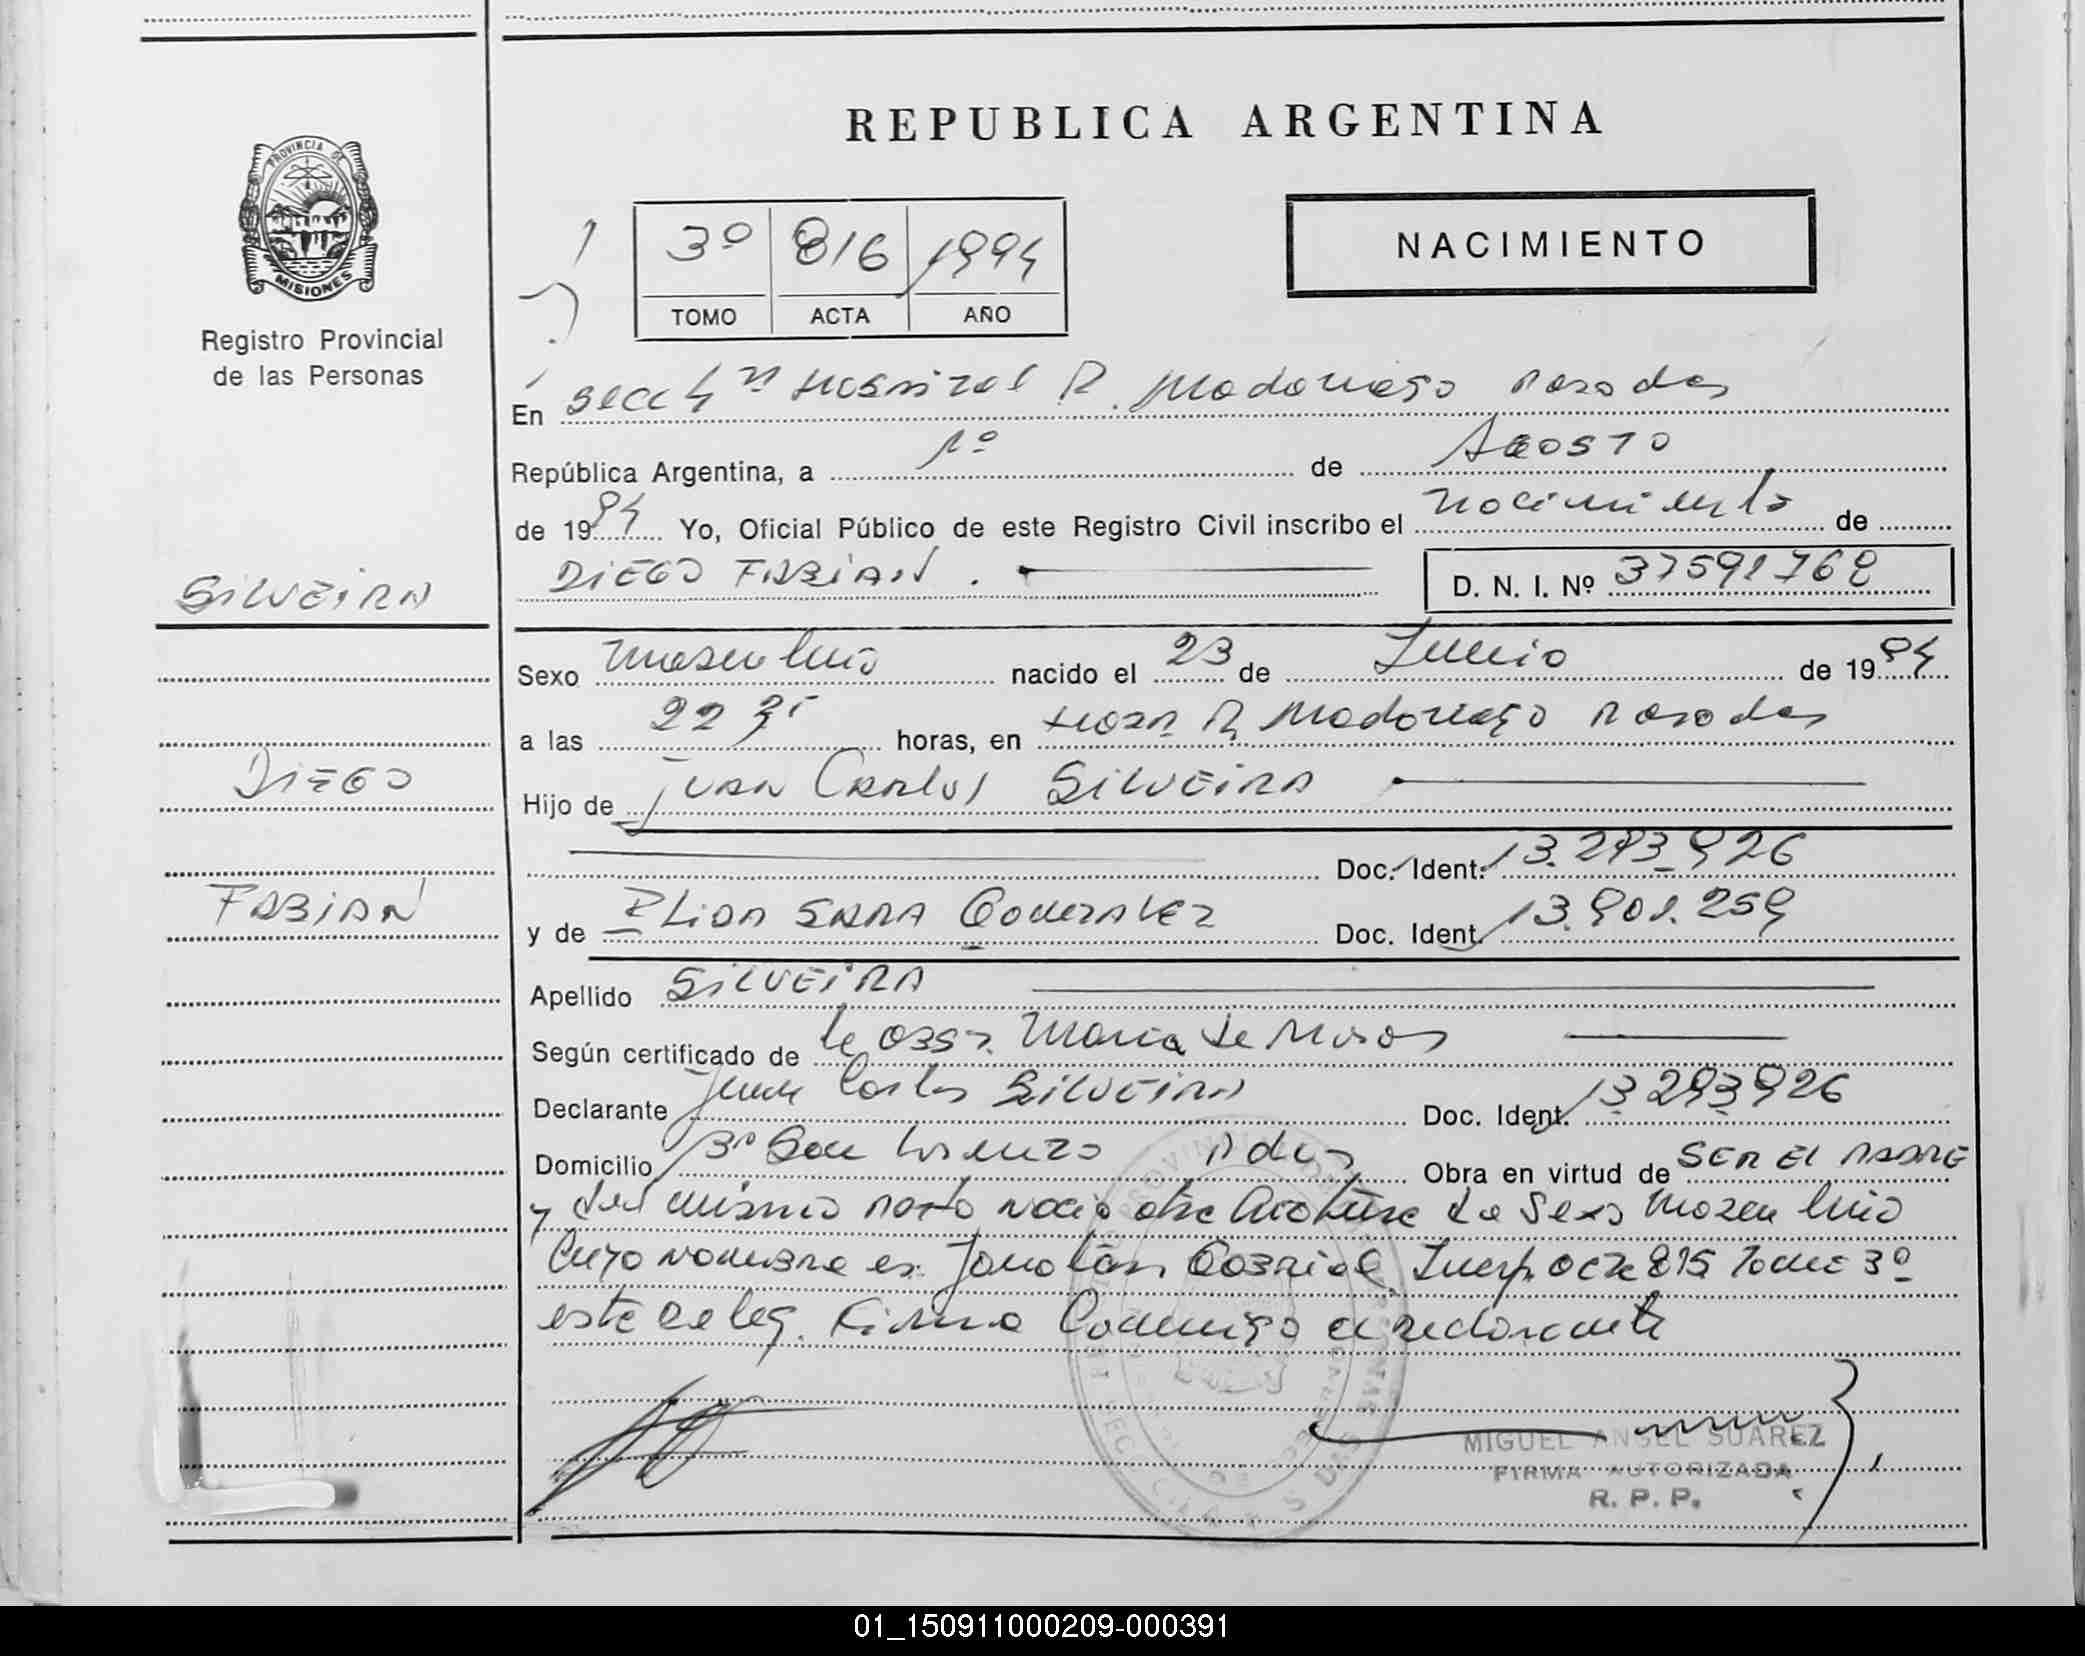 REPUBLICA ARGENTINA
PROVINCIA DE
MISIONES
Registro Provincial
de las Personas
3º 816 1994
TOMO ACTA AÑO
NACIMIENTO
En Secc 4ª Hospital R. Madariaga Posadas
República Argentina, a 1º de Agosto
de 1994 Yo, Oficial Público de este Registro Civil inscribo el nacimiento de
DIEGO FABIAN. D. N. I. Nº 37591768
SILVEIRA
Sexo masculino nacido el 23 de Junio de 1994
a las 22 horas, en Hosp R. Madariaga Posadas
DIEGO
Hijo de Juan Carlos SILVEIRA
Doc. Ident. 13.293.926
FABIAN
y de ELIDA SARA GONZALEZ Doc. Ident. 13.901.259
Apellido SILVEIRA
Según certificado de la Obst. Maria de
Declarante Juan Carlos SILVEIRA Doc. Ident. 13293926
Domicilio Bº San Lorenzo Pdas Obra en virtud de SER EL PADRE
y del mismo parto nacio otra criatura de Sexo Masculino
Cuyo nombre es Gabriel 815 Tomo 3º
esta Deleg. Firma Conmigo el declarante
MIGUEL ANGEL SUAREZ
FIRMA AUTORIZADA
R. P. P.
01_150911000209-000391